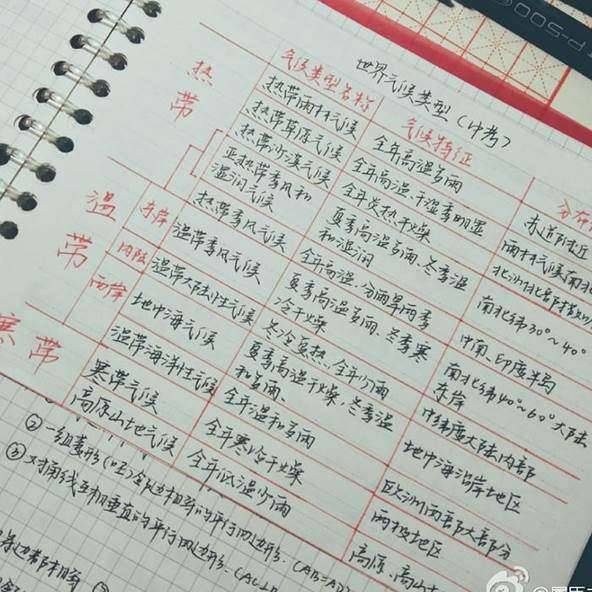 世界气候类型(中考)
气候类型名称 气候特征 分布
热带
热带雨林气候 全年高温多雨 赤道附近
热带草原气候 全年高温、干湿季明显 雨林气候南北
热带沙漠气候 全年炎热干燥
亚热带季风和湿润气候 夏季高温多雨、冬季温和湿润 南北纬30°~40°
热带季风气候 全年高温、分雨旱两季 中南、印度半岛
温带
东岸 温带季风气候 夏季高温多雨、冬季寒冷干燥 南北纬40°~60°大陆东岸
内陆 温带大陆性气候 冬冷夏热、全年少雨 中纬度大陆内部
西岸 地中海气候 夏季高温干燥、冬季温和多雨、 地中海沿岸地区
温带海洋性气候 全年温和多雨 欧洲西部大部分
寒带
寒带气候 全年寒冷干燥 两极地区
高原山地气候 全年低温少雨 高原、高山
② 一组邻边相等的平行四边形
③ 对角线互相垂直的平行四边形